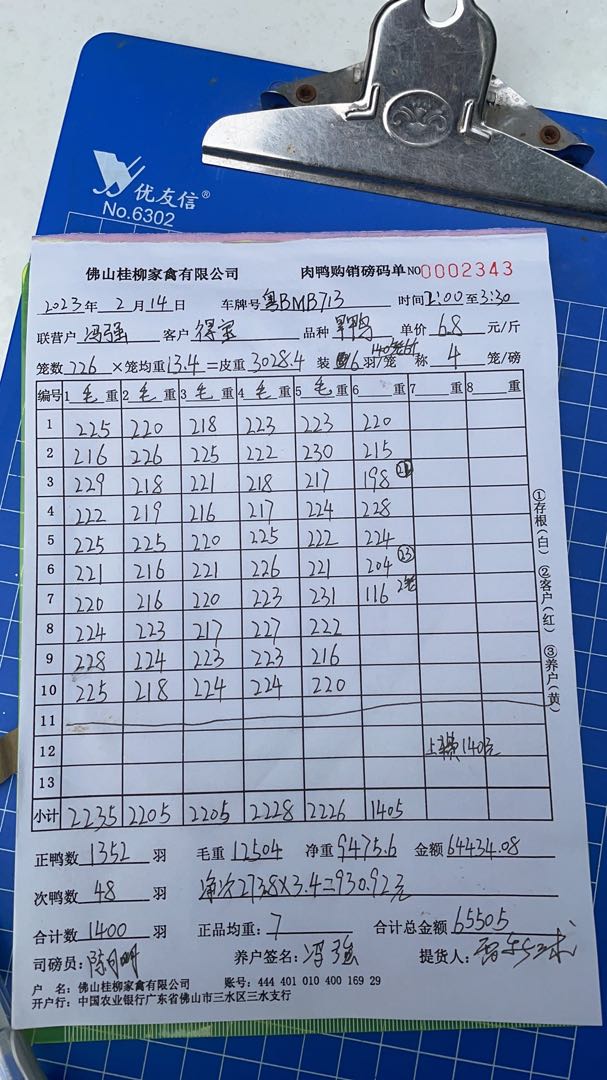 优友信®
No.6302
佛山桂柳家禽有限公司 肉鸭购销磅码单 NO 0002343
2023年 2月 14日 车牌号 粤BMB713 时间 2:00至3:30
联营户 冯强 客户 品种 单价 6.8 元/斤
笼数 226 ×笼均重 13.4 =皮重 3028.4 装 6 羽/笼 称 4 笼/磅
编号 1 毛 重 2 毛 重 3 毛 重 4 毛 重 5 毛 重 6 重 7 重 8 重
1 225 220 218 223 223 220
2 216 226 225 222 230 215
3 229 218 221 218 217 198
4 222 219 216 217 224 228
5 225 225 220 225 222 224
6 221 216 221 226 221 204 23
7 220 216 220 223 231 116
8 224 223 217 227 222
9 228 224 223 223 216
10 225 218 224 224 220
11
12 140元
13
小计 2235 2205 2205 2228 2226 1405
正鸭数 1352 羽 毛重 12504 净重 9475.6 金额 64434.08
次鸭数 48 羽 次273.8×3.4=930.92元
合计数 1400 羽 正品均重: 7 合计总金额 65505
司磅员: 养户签名: 冯强 提货人:
户 名: 佛山桂柳家禽有限公司 账号: 444 401 010 400 169 29
开户行: 中国农业银行广东省佛山市三水区三水支行
①存根(白) ②客户(红) ③养户(黄)